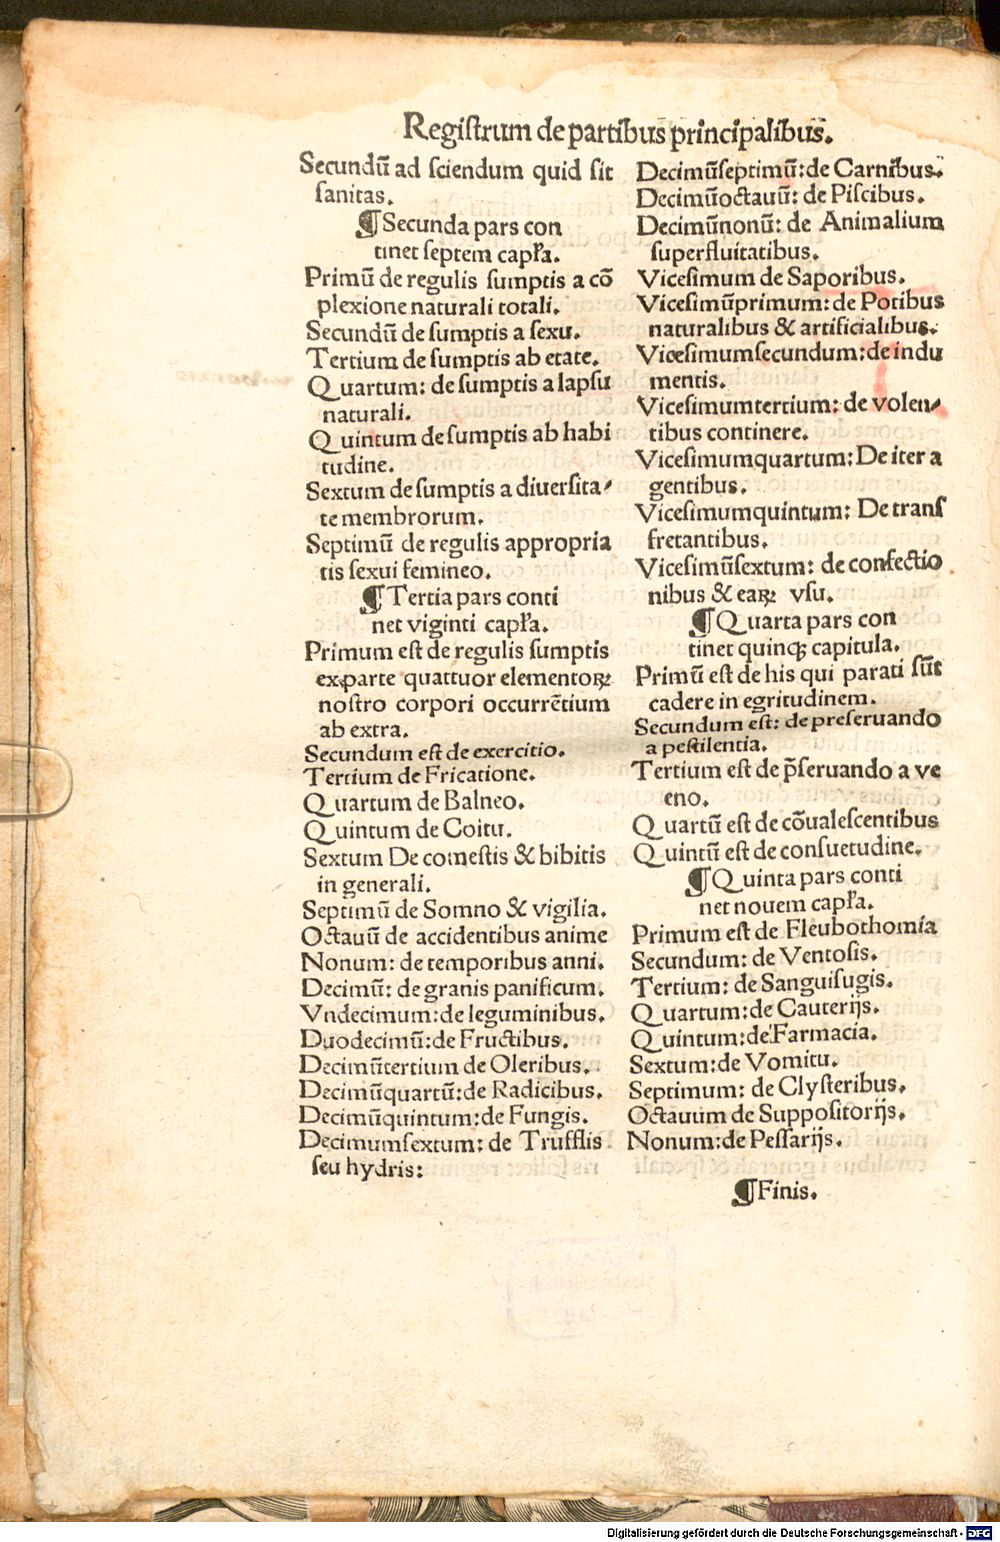 Registrum de partibus principalibus.
Secundū ad sciendum quid sit
sanitas.
¶ Secunda pars con
tinet septem capl'a.
Primū de regulis sumptis a cō
plexione naturali totali.
Secundū de sumptis a sexu.
Tertium de sumptis ab etate.
Quartum: de sumptis a lapsu
naturali.
Quintum de sumptis ab habi
tudine.
Sextum de sumptis a diuersita-
te membrorum.
Septimū de regulis appropria
tis sexui femineo.
¶ Tertia pars conti
net viginti capl'a.
Primum est de regulis sumptis
ex parte quattuor elementoꝝ
nostro corpori occurrētium
ab extra.
Secundum est de exercitio.
Tertium de Fricatione.
Quartum de Balneo.
Quintum de Coitu.
Sextum De comestis & bibitis
in generali.
Septimū de Somno & vigilia.
Octauū de accidentibus anime
Nonum: de temporibus anni.
Decimū: de granis panificum.
Vndecimum: de leguminibus.
Duodecimū: de Fructibus.
Decimūtertium de Oleribus.
Decimūquartū: de Radicibus.
Decimūquintum: de Fungis.
Decimumsextum: de Trufflis
seu hydris:
Decimūseptimū: de Carnibus.
Decimūoctauū: de Piscibus.
Decimūnonū: de Animalium
superfluitatibus.
Vicesimum de Saporibus.
Vicesimūprimum: de Potibus
naturalibus & artificialibus.
Vicesimumsecundum: de indu
mentis.
Vicesimumtertium: de volen-
tibus continere.
Vicesimumquartum: De iter a
gentibus.
Vicesimumquintum: De trans
fretantibus.
Vicesimūsextum: de confectio
nibus & eaꝝ vsu.
¶ Quarta pars con
tinet quinqꝫ capitula.
Primū est de his qui parati sūt
cadere in egritudinem.
Secundum est: de preseruando
a pestilentia.
Tertium est de p̄seruando a ve
eno.
Quartū est de cōualescentibus
Quintū est de consuetudine.
¶ Quinta pars conti
net nouem capl'a.
Primum est de Fleubothomia
Secundum: de Ventosis.
Tertium: de Sanguisugis.
Quartum: de Cauterijs.
Quintum: de Farmacia.
Sextum: de Vomitu.
Septimum: de Clysteribus.
Octauum de Suppositorijs.
Nonum: de Pessarijs.
¶ Finis.
Digitalisierung gefördert durch die Deutsche Forschungsgemeinschaft - DFG